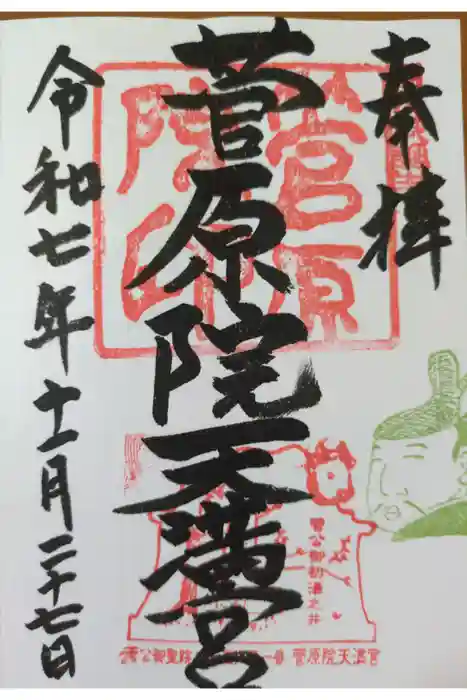 奉拝
菅原院天満宮
令和七年十一月二十七日
菅原
院印
菅公御初湯之井
菅原院天満宮